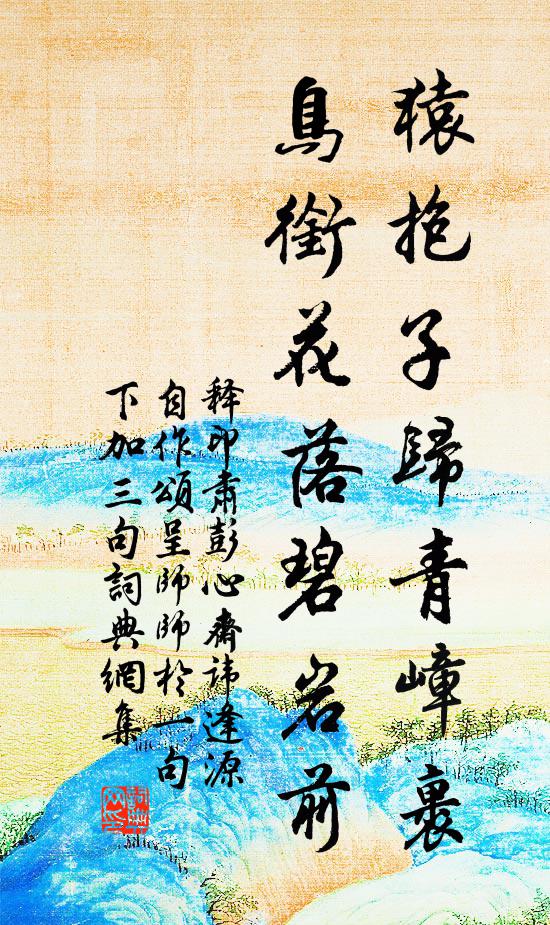 猿抱子歸青嶂裏
鳥銜花落碧岩前
释印肅彭心齋諱逢源
自作頌呈師師於一句
下加三句詞典網集